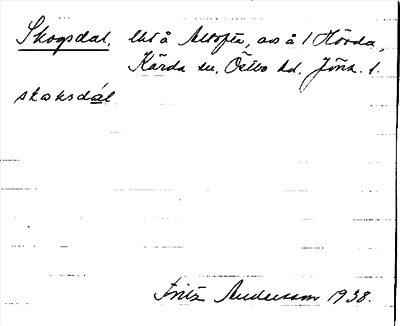 Skogsdal, lht å Altofta, avs å 1 Hörda,
Kärda sn, Östbo hd. Jönk. l.
skoksdál
Fritz Andersson 1938.